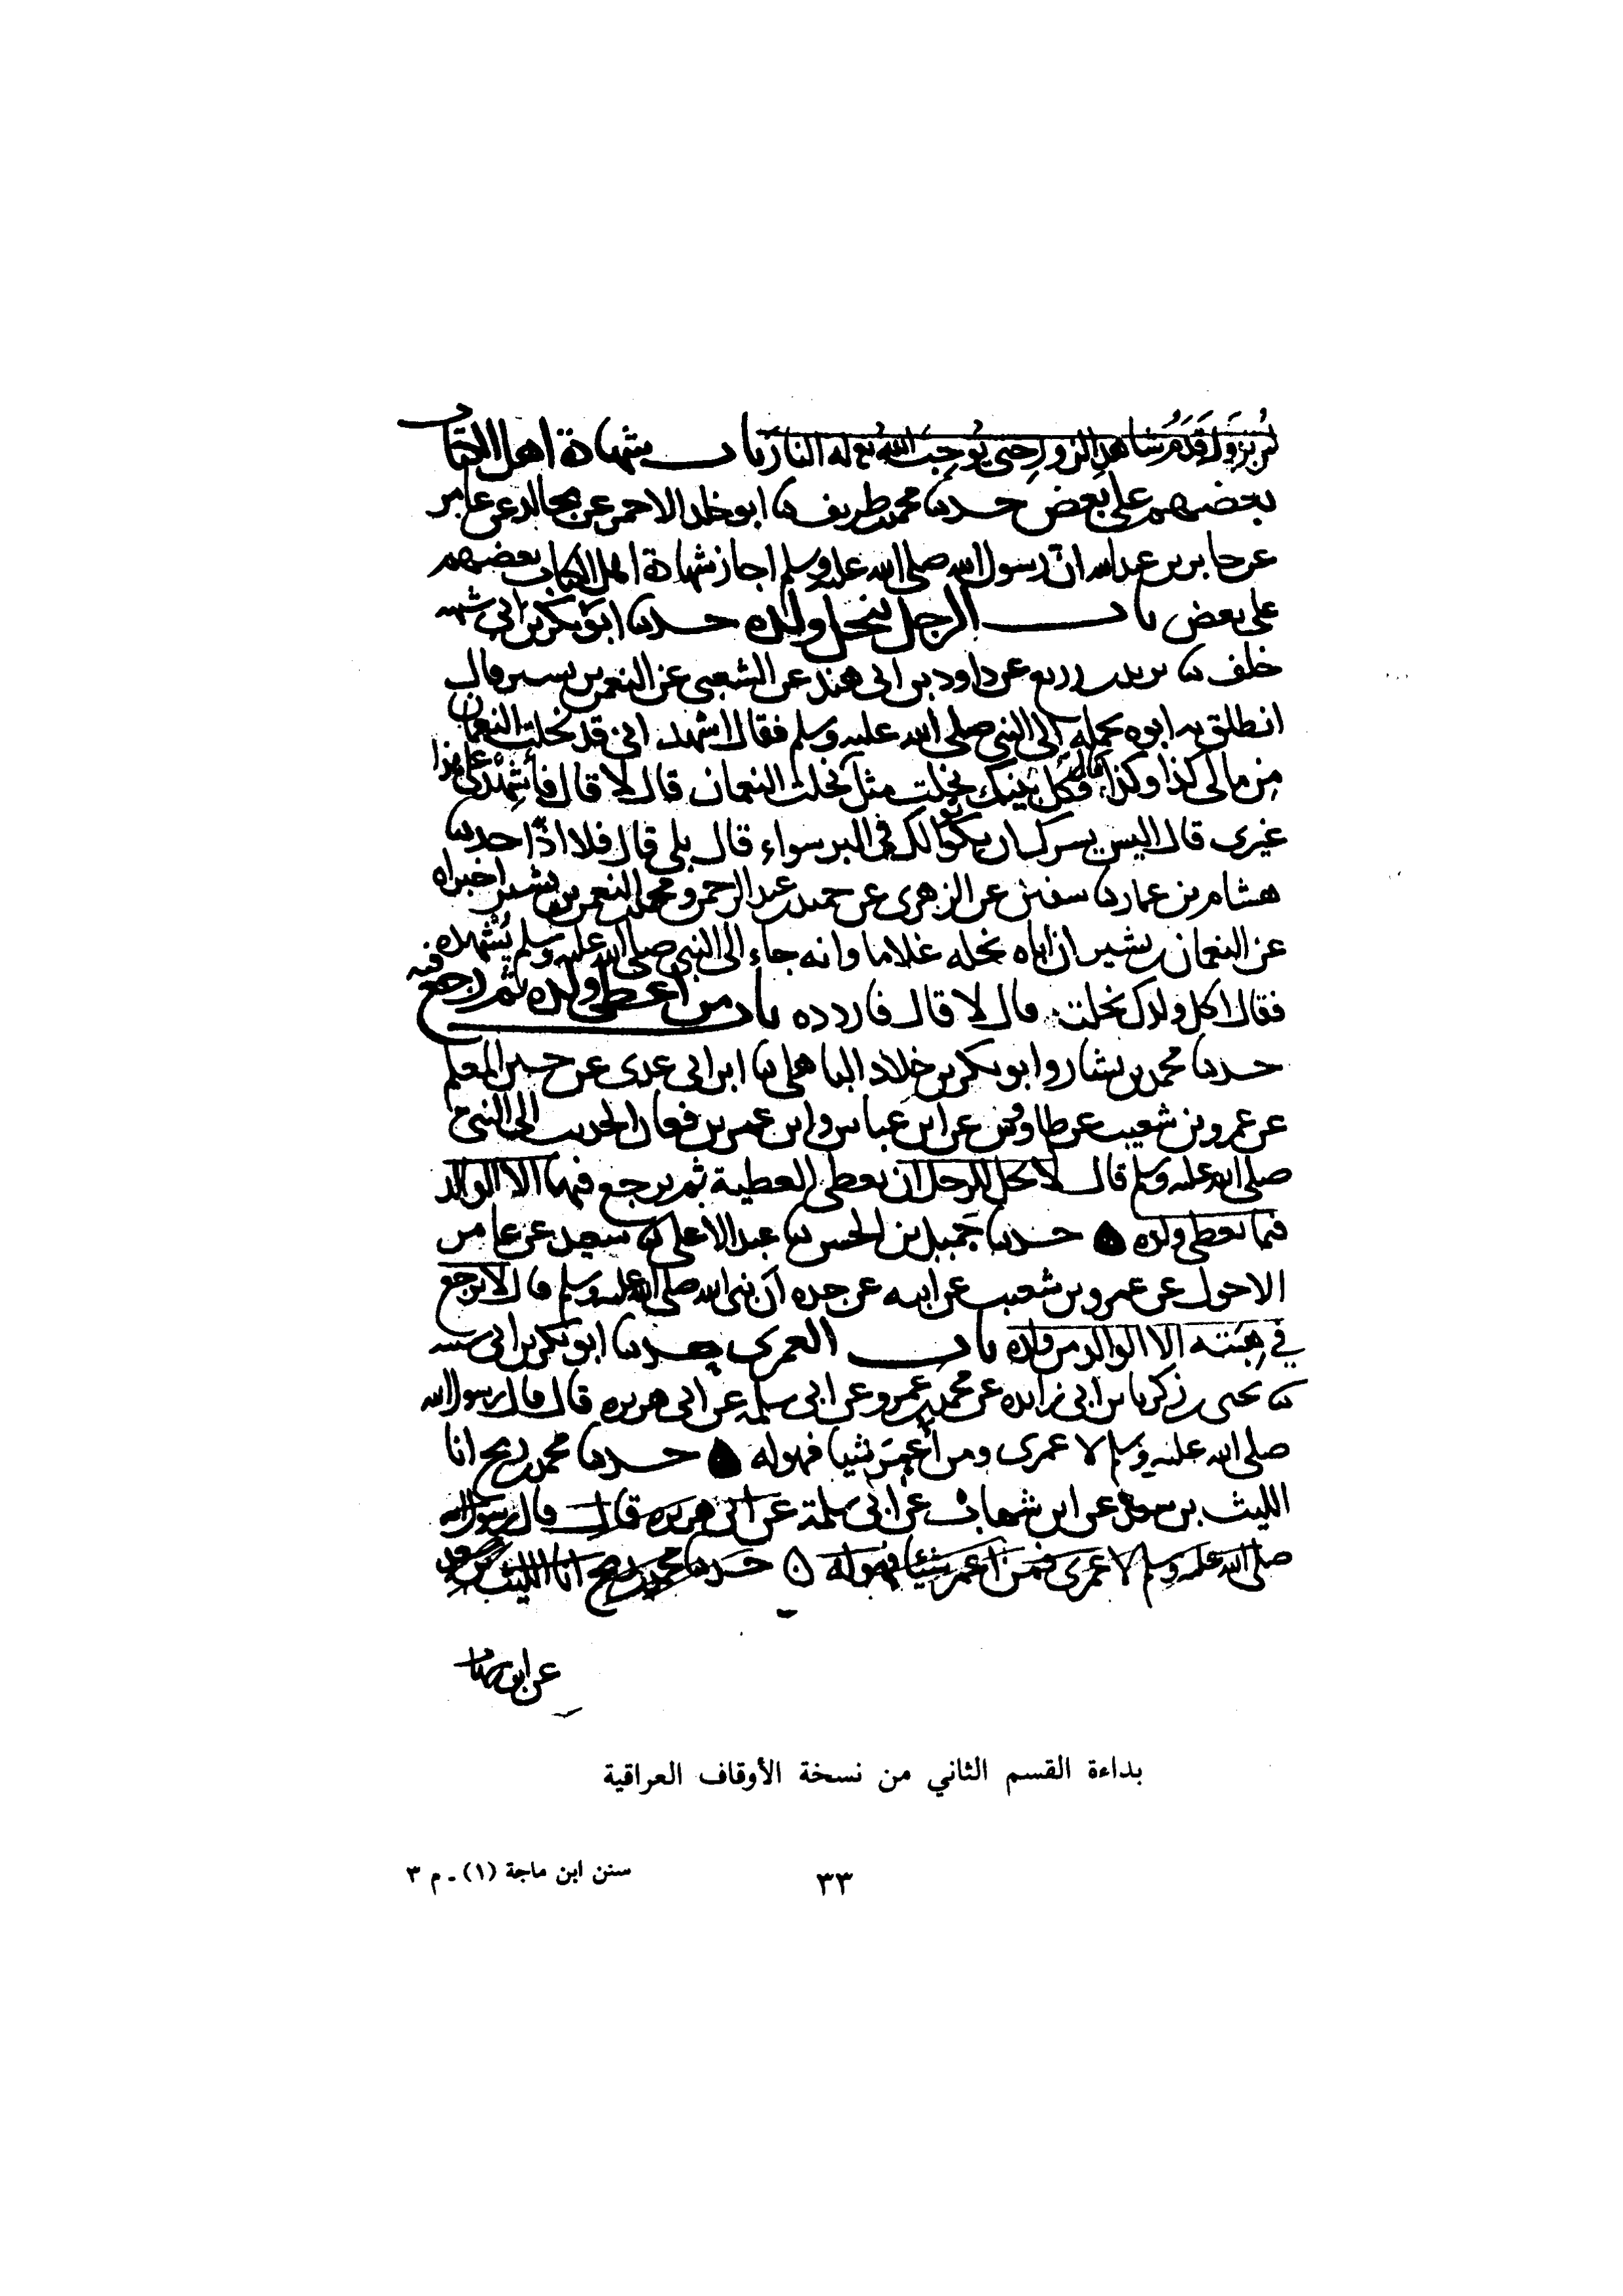 لن تزول قدم شاهد الزور حتى يوجب الله تع له النار باب شهادة اهل الكتاب
بعضهم على بعض حدثنا محمد بن طريف ثنا ابو خلد الاحمر عن مجالد عن عامر
عن جابر بن عبد الله ان رسول الله صلى الله عليه وسلم اجاز شهادة اهل الكتاب بعضهم
على بعض باب الرجل ينحل ولده حدثنا ابو بكر بن ابي
خلف ثنا يزيد بن زريع عن داود بن ابي هند عن الشعبي عن النعمن بن بشير قال
انطلق به ابوه يحمله الى النبي صلى الله عليه وسلم فقال اشهد اني قد نحلت النعمان
من مالي كذا وكذا قال فكل بنيك نحلت مثل نحلت النعمان قال لا قال فأشهد على هذا
غيري قال اليس يسرك ان يكونوا لك في البر سواء قال بلى قال فلا اذا حدثنا
هشام بن عمار ثنا سفين عن الزهري عن حميد بن عبد الرحمن ومحمد بن النعمن بن بشير اخبراه
عن النعمان بن بشير ان اباه نحله غلاما وانه جاء الى النبي صلى الله عليه وسلم يشهده
فقال اكل ولدك نحلت قال لا قال فاردده باب من اعطى ولده ثم رجع فيه
حدثنا محمد بن بشار وابو بكر بن خلاد الباهلي ثنا ابن ابي عدي عن حسين المعلم
عن عمرو بن شعيب عن طاوس عن ابن عباس وابن عمر يرفعان الحديث الى النبي
صلى الله عليه وسلم قال لا يحل للرجل ان يعطي العطية ثم يرجع فيها الا الوالد
فيما يعطي ولده ه حدثنا جميل بن الحسن ثنا عبد الاعلى ثنا سعيد عن عامر
الاحول عن عمرو بن شعيب عن ابيه عن جده ان نبي الله صلى الله عليه وسلم قال لا يرجع
في هبته الا الوالد من ولده باب العمرى حدثنا ابو بكر بن ابي شيبه
ثنا يحيى بن زكريا بن ابي زائده عن محمد بن عمرو عن ابي سلمة عن ابي هريره قال قال رسول الله
صلى الله عليه وسلم لا عمرى ومن أعمر شيا فهو له ه حدثنا محمد بن رمح انا
الليث بن سعد عن ابن شهاب عن ابي سلمة عن ابي هريره قال قال رسول الله
صلى الله عليه وسلم لا عمرى فمن أعمر شيئا فهو له ه حدثنا محمد بن رمح انا الليث بن سعد
عن ابن شهاب
بداءة القسم الثاني من نسخة الأوقاف العراقية
سنن ابن ماجة (١) ـ م ٣
٣٣